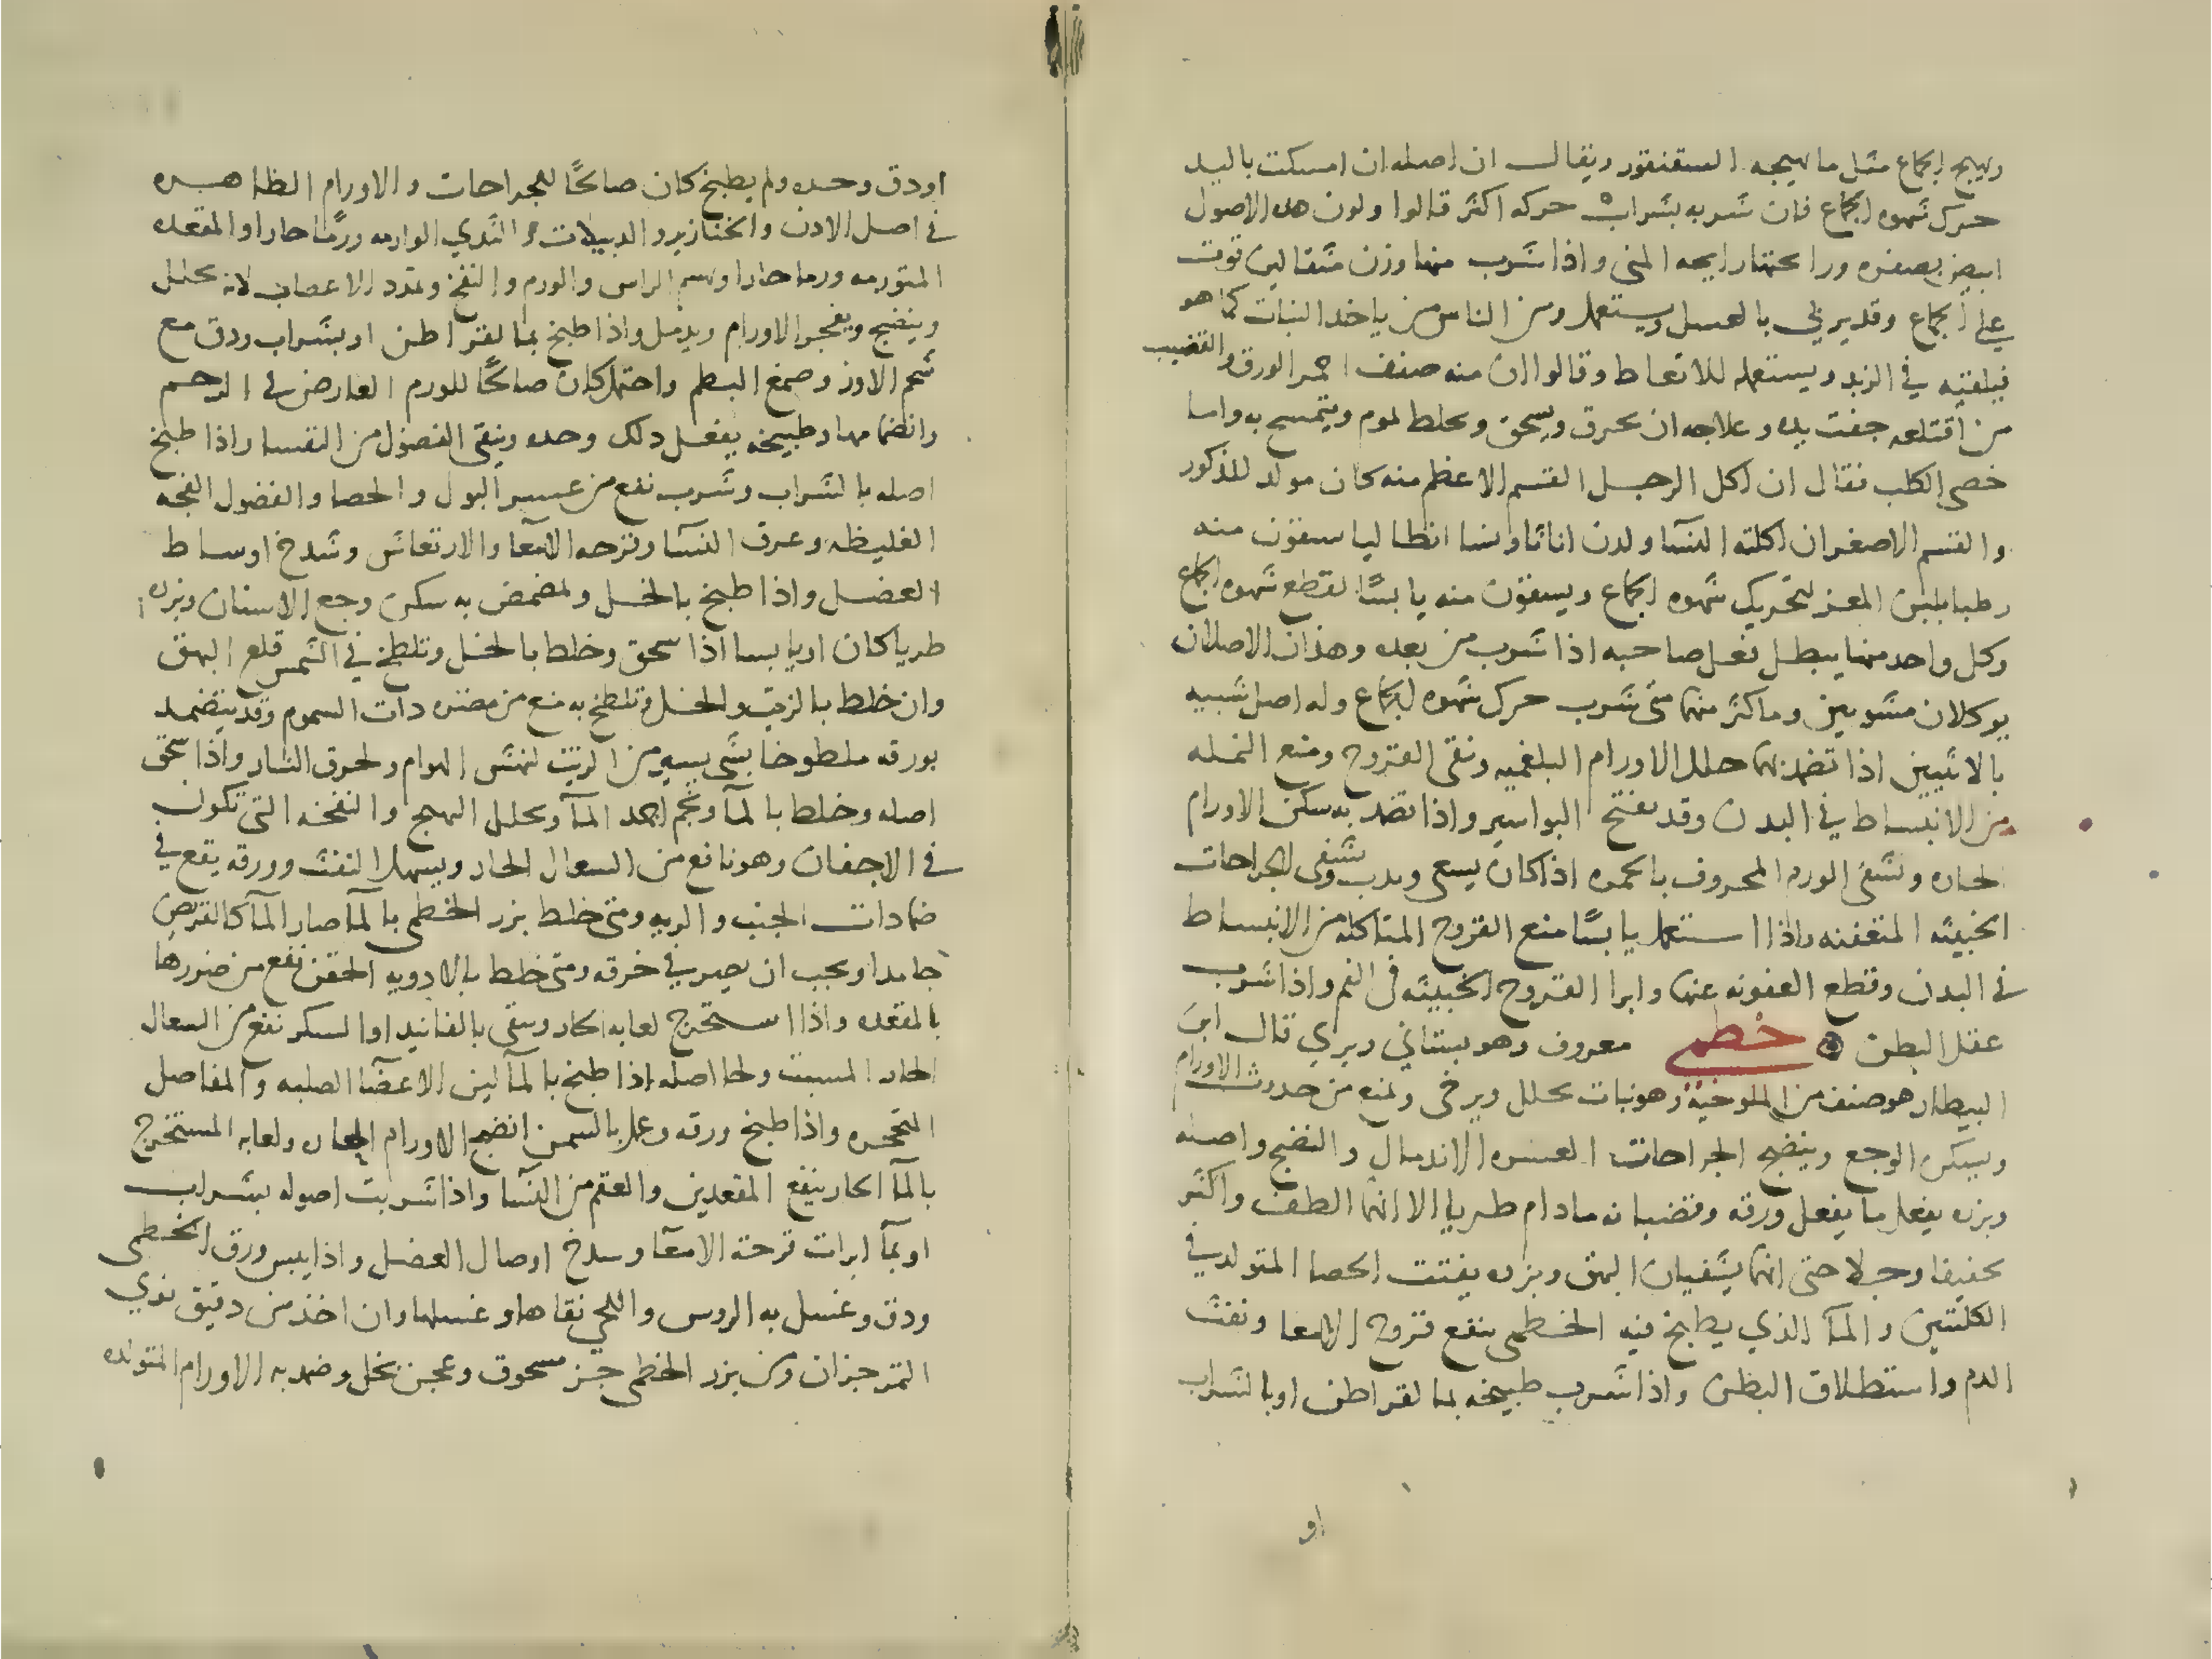 ويهيج الجماع مثل ما يهيجه السقنقور ويقال ان اصله ان امسكت باليد
حرك شهوه الجماع فان شربه بشراب حركه اكثر قالوا ولون هده الاصول
ابيض بصفره ورايحتها رايحه المني واذا شرب منها وزن مثقالين قوت
علي الجماع وقد يربي بالعسل ويستعمل ومن الناس من ياخد النبات كما هو
فيلقيه في الزبد ويستعمله للانعاط وقالوا ان منه صنف احمر الورق والقضيب
من اقتلعه جفت يده وعلاجه ان يحرق ويسحق ويخلط بموم ويتمسح به واما
خصي الكلب فقال ان اكل الرجل القسم الاعظم منه كان مولد للذكور
والقسم الاصغر ان اكلته النسآ ولدن اناثا ونسا انطاليا يسقون منه
رطبا بلبن المعز لتحريك شهوه الجماع ويسقون منه يابسًا لقطع شهوه الجماع
وكل واحد منهما يبطل فعل صاحبه اذا شرب من بعده وهذان الاصلان
يوكلان مشويين وما كثر منهما متي شرب حرك شهوه الجماع وله اصل شبيه
بالانثيين اذا تضمد بهما حلل الاورام البلغميه ونقي القروح ومنع النمله
من الانبساط في البدن وقد يفتح البواسير واذا تضمد به سكن الاورام
الحاره وتشفي الورم المعروف بالحمره اذا كان يسعي ويدب ويشفي الجراحات
الخبيثه المتعفنه واذا استعمل يابسًا منع القروح المتاكله من الانبساط
في البدن وقطع العفونه عنها وابرا القروح الخبيثه في الفم واذا شرب
عقل البطن خطمي معروف وهو بستاني وبري قال ابن
البيطار هو صنف من الملوخية وهو نبات يحلل ويرخي ويمنع من حدوث الاورام
ويسكن الوجع وينضج الجراحات العسره الاندمال والنضج واصله
وبزره يفعل ما يفعل ورقه وقضبانه مادام طريا الا انهما الطف واكثر
تجفيفا وجلا حتي انهما يشفيان البهق وبزره يفتت الحصا المتولد في
الكليتين والمآ الذي يطبخ فيه الخطمي ينفع قروح الامعا ونفث
الدم واستطلاق البطن واذا شرب طبيخه بمالقراطن او بالشراب
او
او دق وحده ولم يطبخ كان صالحًا للجراحات والاورام الظاهره
في اصل الادن والخنازير والدبيلات والثدي الوارمه ورمًا حارا والمقعده
المتورمه ورما حارا وسم الراس والورم والنفخ وتمدد الاعصاب لانه يحلل
وينضج ويفجر الاورام ويدمل واذا طبخ بمالقراطن او بشراب ودق مع
شحم الاوز وصمغ البطم واحتمل كان صالحًا للورم العارض في الرحم
وانضمامها وطبيخه يفعل دلك وحده وينقي الفضول من النفسا واذا طبخ
اصله بالشراب وشرب نفع من عسر البول والحصا والفضول الفجه
الغليظه وعرق النسآ وقرحه الامعآ والارتعاش وشدخ اوساط
العضل واذا طبخ بالخل وتمضمض به سكن وجع الاسنان وبزره
طريا كان او يابسا اذا سحق وخلط بالخل وتلطخ في الشمس قلع البهق
وان خلط بالزيت والخل وتلطخ به منع من مضره دات السموم وقد يتضمد
بورقه ملطوخا بشي يسير من الزيت لنهش الهوام ولحرق النار واذا سحق
اصله وخلط بالمآ ونجم اجمد المآ ويحلل التهيج والنفخه التي تكون
في الاجفان وهو نافع من السعال الحار ويسهل النفث وورقه يقع في
ضمادات الجنب والريه ومتي خلط بزر الخطمي بالمآ صار المآ كالقريص
جامدا ويجب ان يصير في خرقه ومتي خلط بالادويه الحقن نفع من ضررها
بالمقعده واذا استخرج لعابه الحار وسقي بالفانيد او السكر نفع من السعال
الحار المسبت ولحا اصله اذا طبخ بالمآ لين الاعضآ الصلبه والمفاصل
المتحجره واذا طبخ ورقه وعمل بالسمن انضج الاورام الحاره ولعابه المستخرج
بالمآ الحار ينفع المقعدين والعقم من النسآ واذا شربت اصوله بشراب
او بمآ ابرات قرحه الامعآ وسدخ اوصال العضل واذا يبس ورق الخطمي
ودق وغسل به الروس واللحي نقاها وغسلها وان اخذ من دقيق نوي
التمر جزان ومن بزر الخطمي جز مسحوق وعجن بخل وضمد به الاورام المتولده